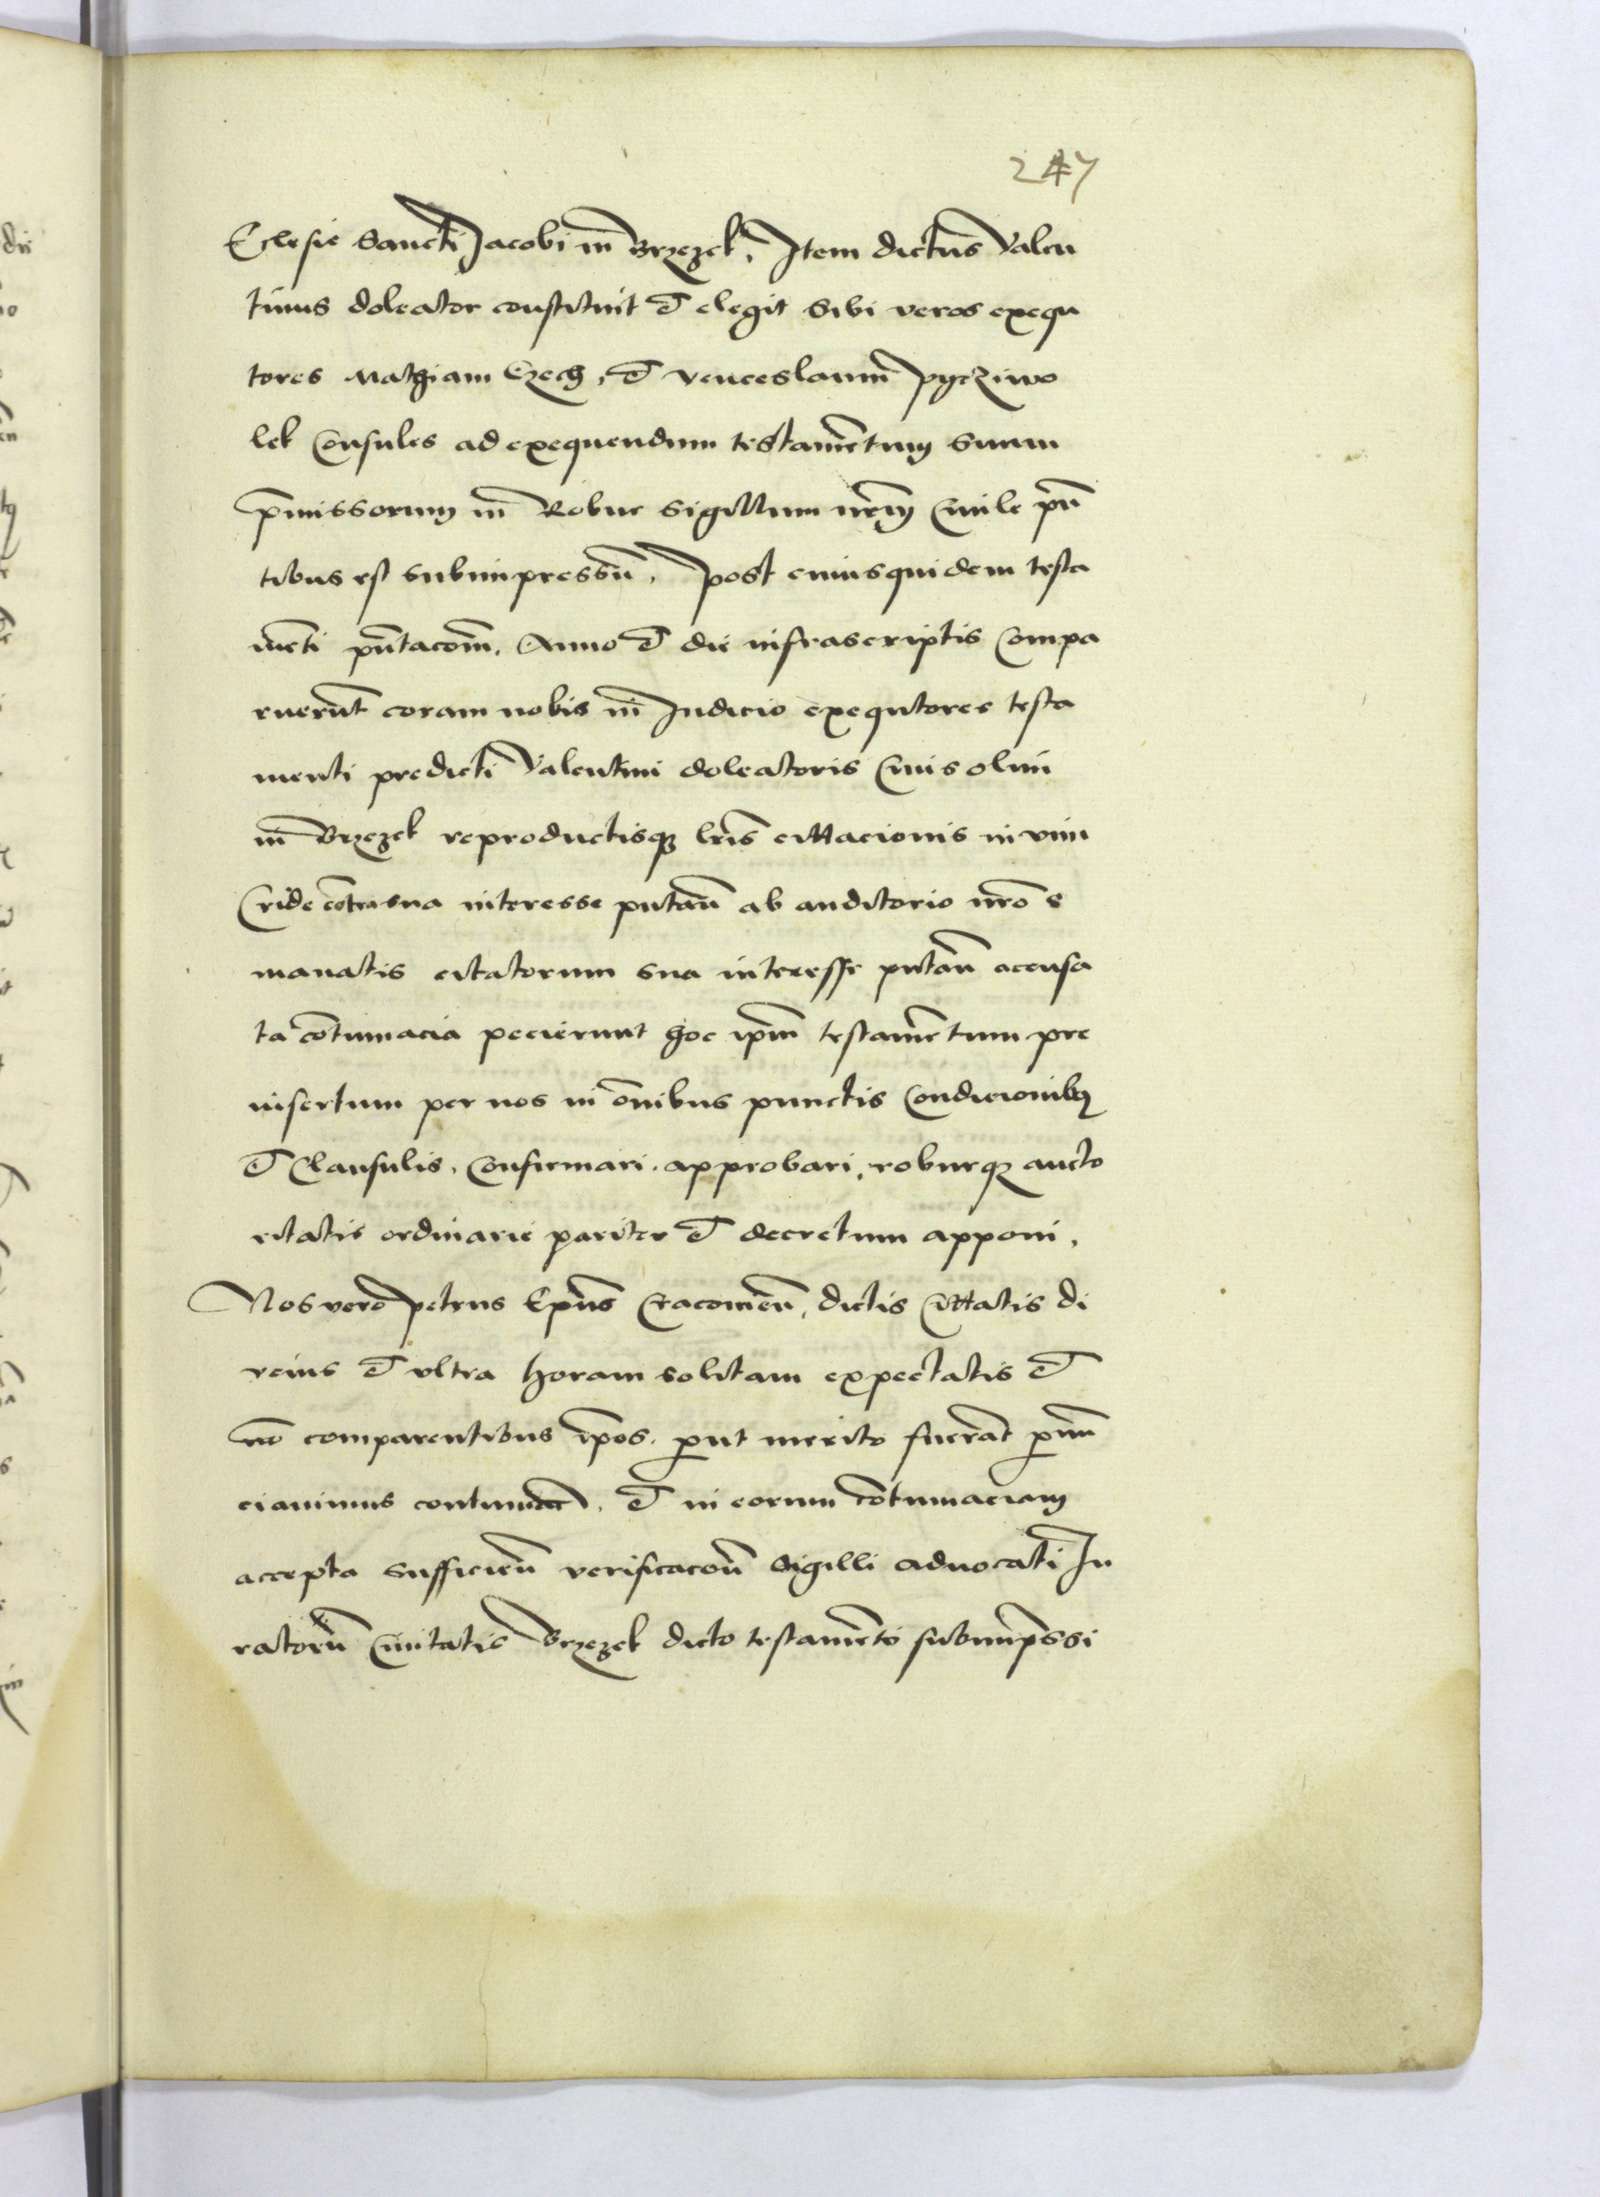 247
Eclesie Sancti Jacobi in Brzezek, Item dictus Valen
tinus doleator constituit et elegit sibi veros exequ
tores Mathiam Czech, et Venceslaum Pyrziwo
lek Consules ad exequendum testamentum suum
p̄missorum in Robur sigillum nr̄m Civile pn̄
tibus est subimpressū, Post cuiusquidem testa
mēti pn̄tacōm, Anno et die infrascriptis Compa
ruerūt coram nobis in Judicio exequtores testa
menti predicti Valentini doleatoris Civis olim
in Brzezek reproductisque lr̄is cittacionis in vim
Cride cōtra sua interesse putan̄ ab auditorio nr̄o e
manatis citatorum sua interesse putan̄ accusa
ta cōtumacia pecierunt hoc ip̄m testamētum pre
insertum per nos in ōnibus punctis Condicionibus
et Clausulis, Confirmari, approbari, roburque aucto
ritatis ordinarie pariter et decretum apponi,
Nos vero Petrus Ep̄us Cracovien̄, dictis Cittatis di
ucius et vltra horam solitam expectatis et
nō comparentibus ip̄os, put merito fuerāt pnun
ciavimus contumaces, et in eorum cōtumaciam
accepta sufficien̄ verificacōn̄ Sigilli advocati Ju
ratorū Civitatis Brzezek dicto testamēto subimp̄ssi